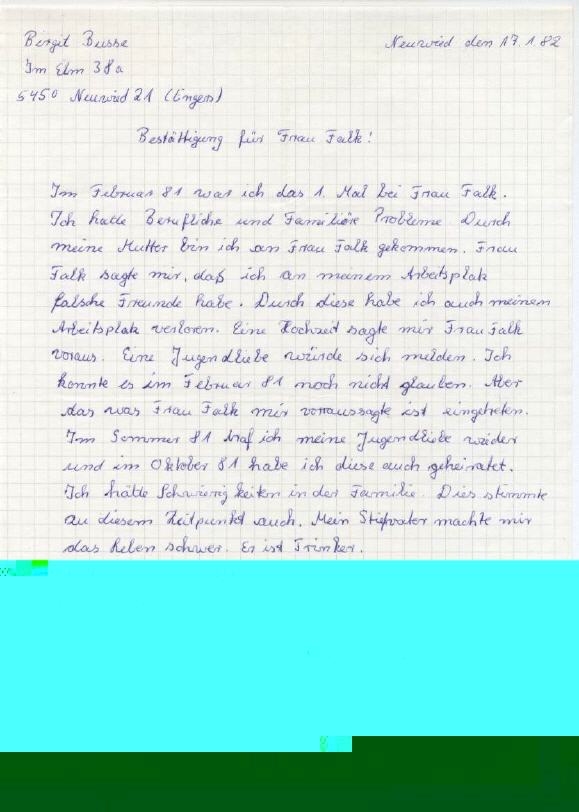 Birgit Busse
Neuwied den 17.1.82
Im Elm 38a
5450 Neuwied 21 (Engers)
Bestättigung für Frau Falk!
Im Februar 81 war ich das 1. Mal bei Frau Falk.
Ich hatte Berufliche und Familiäre Probleme. Durch
meine Mutter bin ich an Frau Falk gekommen. Frau
Falk sagte mir, daß ich an meinem Arbeitsplatz
falsche Freunde habe. Durch diese habe ich auch meinem
Arbeitsplatz verloren. Eine Hochzeit sagte mir Frau Falk
voraus. Eine Jugendliebe würde sich melden. Ich
konnte es im Februar 81 noch nicht glauben. Aber
das was Frau Falk mir vorraussagte ist eingetreten.
Im Sommer 81 traf ich meine Jugendliebe wieder
und im Oktober 81 habe ich diese auch geheiratet.
Ich hätte Schwierigkeiten in der Familie. Dies stimmte
zu diesem Zeitpunkt auch. Mein Stiefvater machte mir
das Leben schwer. Er ist Trinker.